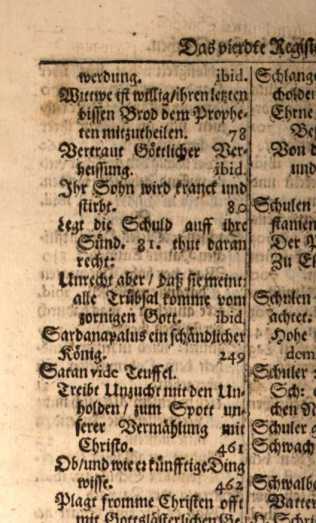 Das vierdte Regist
werdung. ibid.
Wittwe ist willig/ihren letzten
bissen Brod dem Prophe-
ten mitzutheilen. 78
Vertraut Göttlicher Ver-
heissung. ibid.
Ihr Sohn wird kranck und
stirbt. 80
Legt die Schuld auff ihre
Sünd. 81. thut daran
recht:
Unrecht aber / daß sie meint:
alle Trübsal komme vom
zornigen Gott. ibid.
Sardanapalus ein schändlicher
König. 249
Satan vide Teuffel.
Treibt Unzucht mit den Un-
holden / zum Spott un-
serer Vermählung mit
Christo. 461
Ob/und wie er künfftige Ding
wisse. 462
Plagt fromme Christen offt
mit Gottslästerlichen Ge-
Schlang
Ehrne
Von d
und
Schulen
Der P
Zu El
Schulen
achtet.
Hohe
dem
Schuler
Sch:
chen N
Schuler
Schwach
Schwalb
Vatter